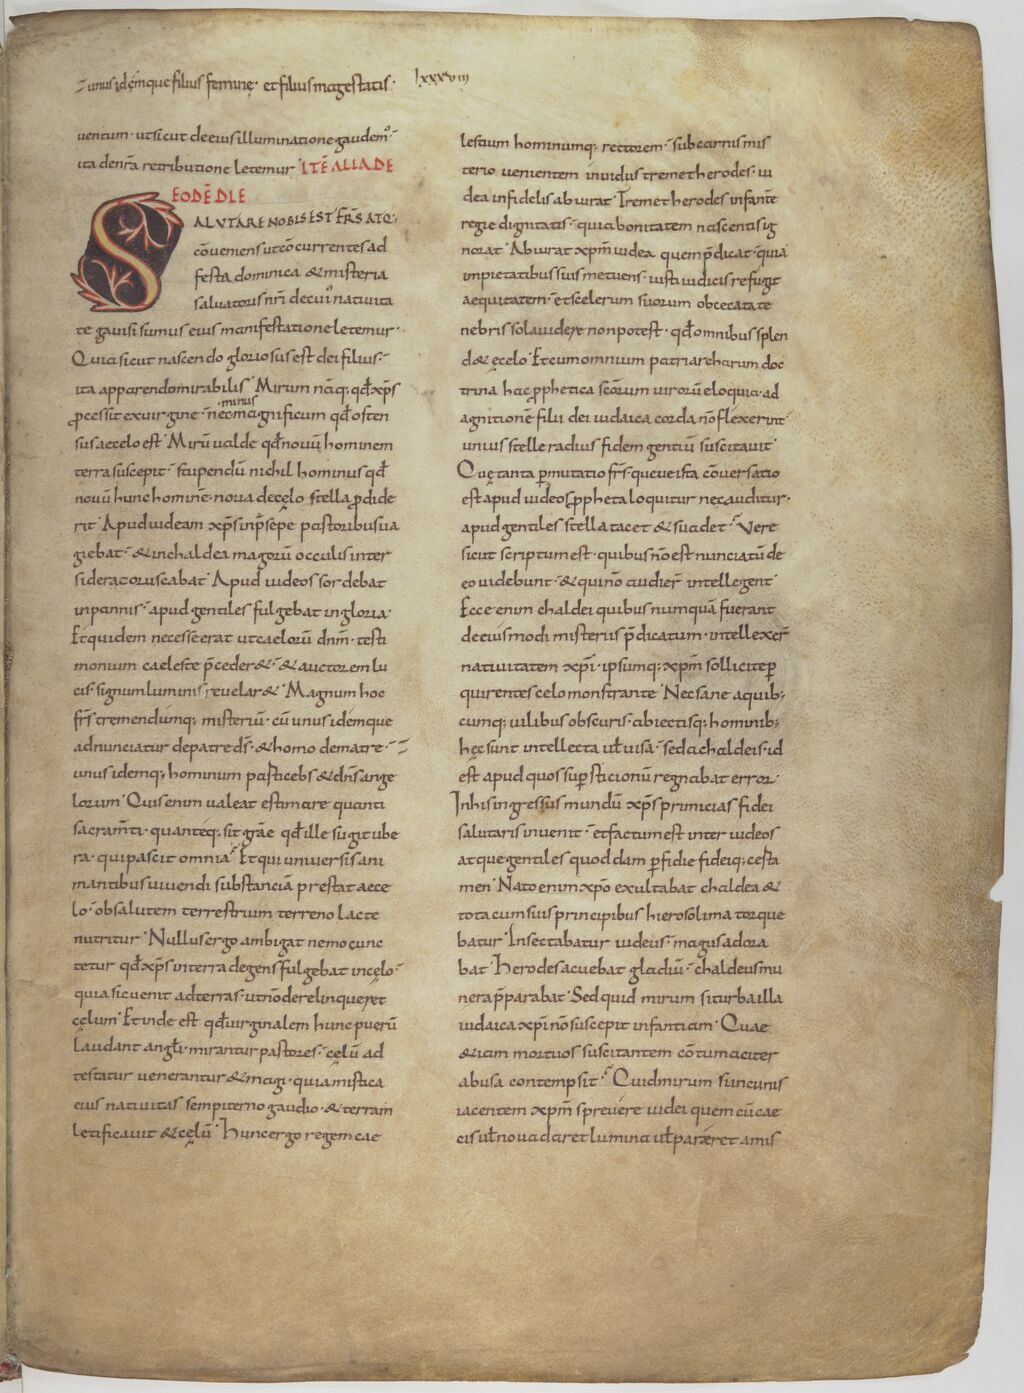 unus idēmque filius feminę· et filius magestatis·
lxxxviii
uentum· ut sicut de eius illuminatione gaudem᷒·
ita de nr̄a retributione letemur· ITĒ ALIA DE
EODĒ DIE
SALUTARE NOBIS EST FR̄S ATQ·
cōueniens ut cōcurrentes ad
festa dominica & misteria
saluatoris nr̄i de cui᷒ natiuita
te gauisi sumus eius manifestatione letemur·
Quia sicut nascendo gloriosus est dei filius·
ita apparendo mirabilis· Mirum nāq; qđ xp̄s
ꝓcessit ex uirgine· nec minus magnificum qđ osten
sus a celo est· Mirū ualde qđ nouū hominem
terra suscepit· stupendū nichilhominus qđ
nouū hunc hominē· noua de cęlo stella ꝓdide
rit· Apud iudeam xp̄s in p̄sepe pastoribus ua
giebat· & in chaldea magorū occulis inter
sidera coruscabat· Apud iudeos sordebat
in pannis· apud gentiles fulgebat in gloria·
Et quidem necesse erat ut caelorū dnm̄· testi
monium caeleste p̄ceder&· & auctorem lu
cis· signum luminis reuelar&· Magnum hoc
fr̄s tremendūmq; misteriū· cū unus idēmque
adnunciatur de patre ds̄· & homo de matre·
unus idemq; hominum particebs & dn̄s ange
lorum· Quis enim ualeat estimare quanti
sacram̄ti· quanteq; sit gr̄ae qđ ille sugit ube
ra· qui pascit omnia· Et qui uniuersis ani
mantibus uiuendi substanciā prestat a ce
lo· ob salutem terrestrium terreno lacte
nutritur· Nullus ergo ambigat nemo cunc
tetur qđ xp̄s in terra degens fulgebat in cęlo·
quia sic uenit ad terras· ut nō derelinqueret
cęlum· Et inde est qđ uirginalem hunc puerū
laudant angłi· mirantur pastores· cęlū ad
testatur uenerantur & magi· quia mistica
eius natiuitas sempiterno gaudio· & terram
letificauit & cęlū· Hunc ergo regem cae
lestium hominumq; rectorem· sub carnis mis
terio uenientem inuidus tremet herodes· iu
dea infidelis abiurat· Tremet herodes infantē
regie dignitatis· quia bonitatem nascentis ig
norat· Abiurat xp̄m iudea quem p̄dicat· quia
impietatibus suis metuens· iusti iudicis refugit
aequitatem· et scelerum suorum obcecata te
nebris sola uidere non potest· qđ omnibus splen
d& ę celo· Et cum omnium patriarcharum doc
trina hac ꝓphetica sc̄orum uirorū eloquia· ad
agnitionē filii dei iudaica corda nō flexerint·
unius stelle radius fidem gentiū suscitauit·
Quę tanta p̱mutatio fr̄s· que ue ista cōuersatio
est apud iudeos ꝓpheta loquitur nec auditur·
apud gentiles stella tacet & suadet· Vere
sicut scriptum est· quibus nō est nunciatū de
eo uidebunt· & qui nō audier̄ intellegent·
Ecce enim chaldei quibus numquā fuerant
de eiusmodi misteriis p̄dicatum· intellexer̄
natiuitatem xp̄i· ipsumq; xp̄m sollicite p̱
quirentes celo monstrante· Nec sane a quib;
cumq; uilibus obscuris· abiectisq; hominib;
hęc sunt intellecta uł uisa· sed a chaldeis· id
est apud quos sup̱sticionū regnabat error·
In his ingressus mundū xp̄s primicias fidei
salutaris inuenit· et factum est inter iudeos
atque gentiles quoddam p̱fidie fideiq; certa
men· Nato enim xp̄o exultabat chaldea &
tota cum suis principibus hierosolima torque
batur· Insectabatur iudeus· magus adora
bat· Herodes acuebat gladiū· chaldeus mu
nera p̄parabat· Sed quid mirum si turba illa
iudaica xp̄i nō suscepit infantiam· Quae
& iam mortuos suscitantem cōtumaciter
abusa contempsit· Quid mirum si in cunis
iacentem xp̄m spreuere iudei quem cū cae
cis uł noua daret lumina uł pararet amis